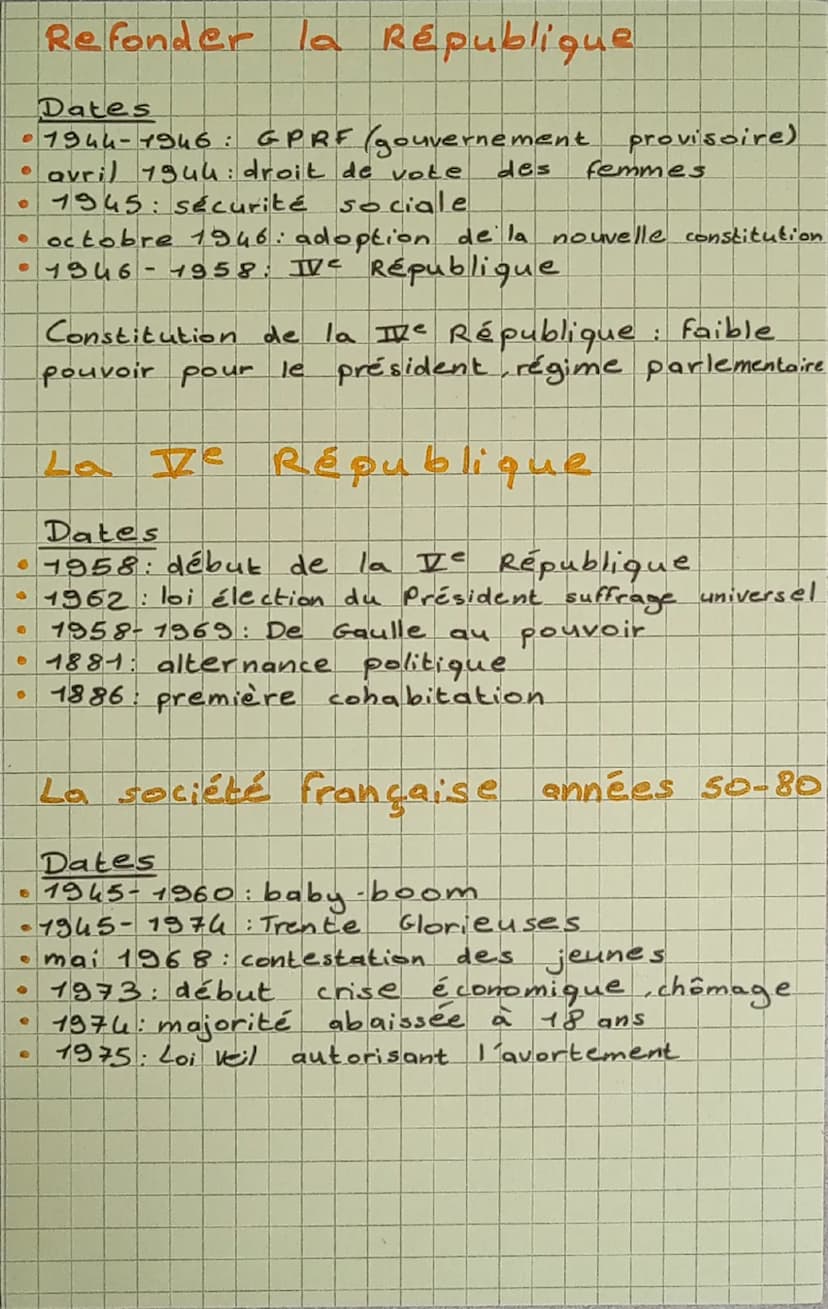 Refonder la République
Dates
• 1944-1946 : GPRF (gouvernement provisoire)
• avril 1944 : droit de vote des femmes
• 1945 : sécurité sociale
• octobre 1946 : adoption de la nouvelle constitution
• 1946 - 1958 : IVe République
Constitution de la IVe République : faible
pouvoir pour le président, régime parlementaire
La Ve République
Dates
• 1958 : début de la Ve République
• 1962 : loi élection du Président suffrage universel
• 1958-1969 : De Gaulle au pouvoir
• 1881 : alternance politique
• 1886 : première cohabitation
La société française années 50-80
Dates
• 1945-1960 : baby-boom
• 1945-1974 : Trente Glorieuses
• mai 1968 : contestation des jeunes
• 1973 : début crise économique, chômage
• 1974 : majorité abaissée à 18 ans
• 1975 : Loi Veil autorisant l'avortement